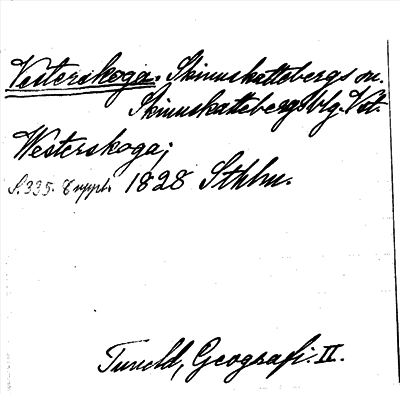 Vesterskoga. Skinnskattebergs sn.
Skinnskattebergs blg. Vst.
Westerskoga;
S. 335. Suppl. 1828 Sthlm.
Tuneld, Geografi. II.